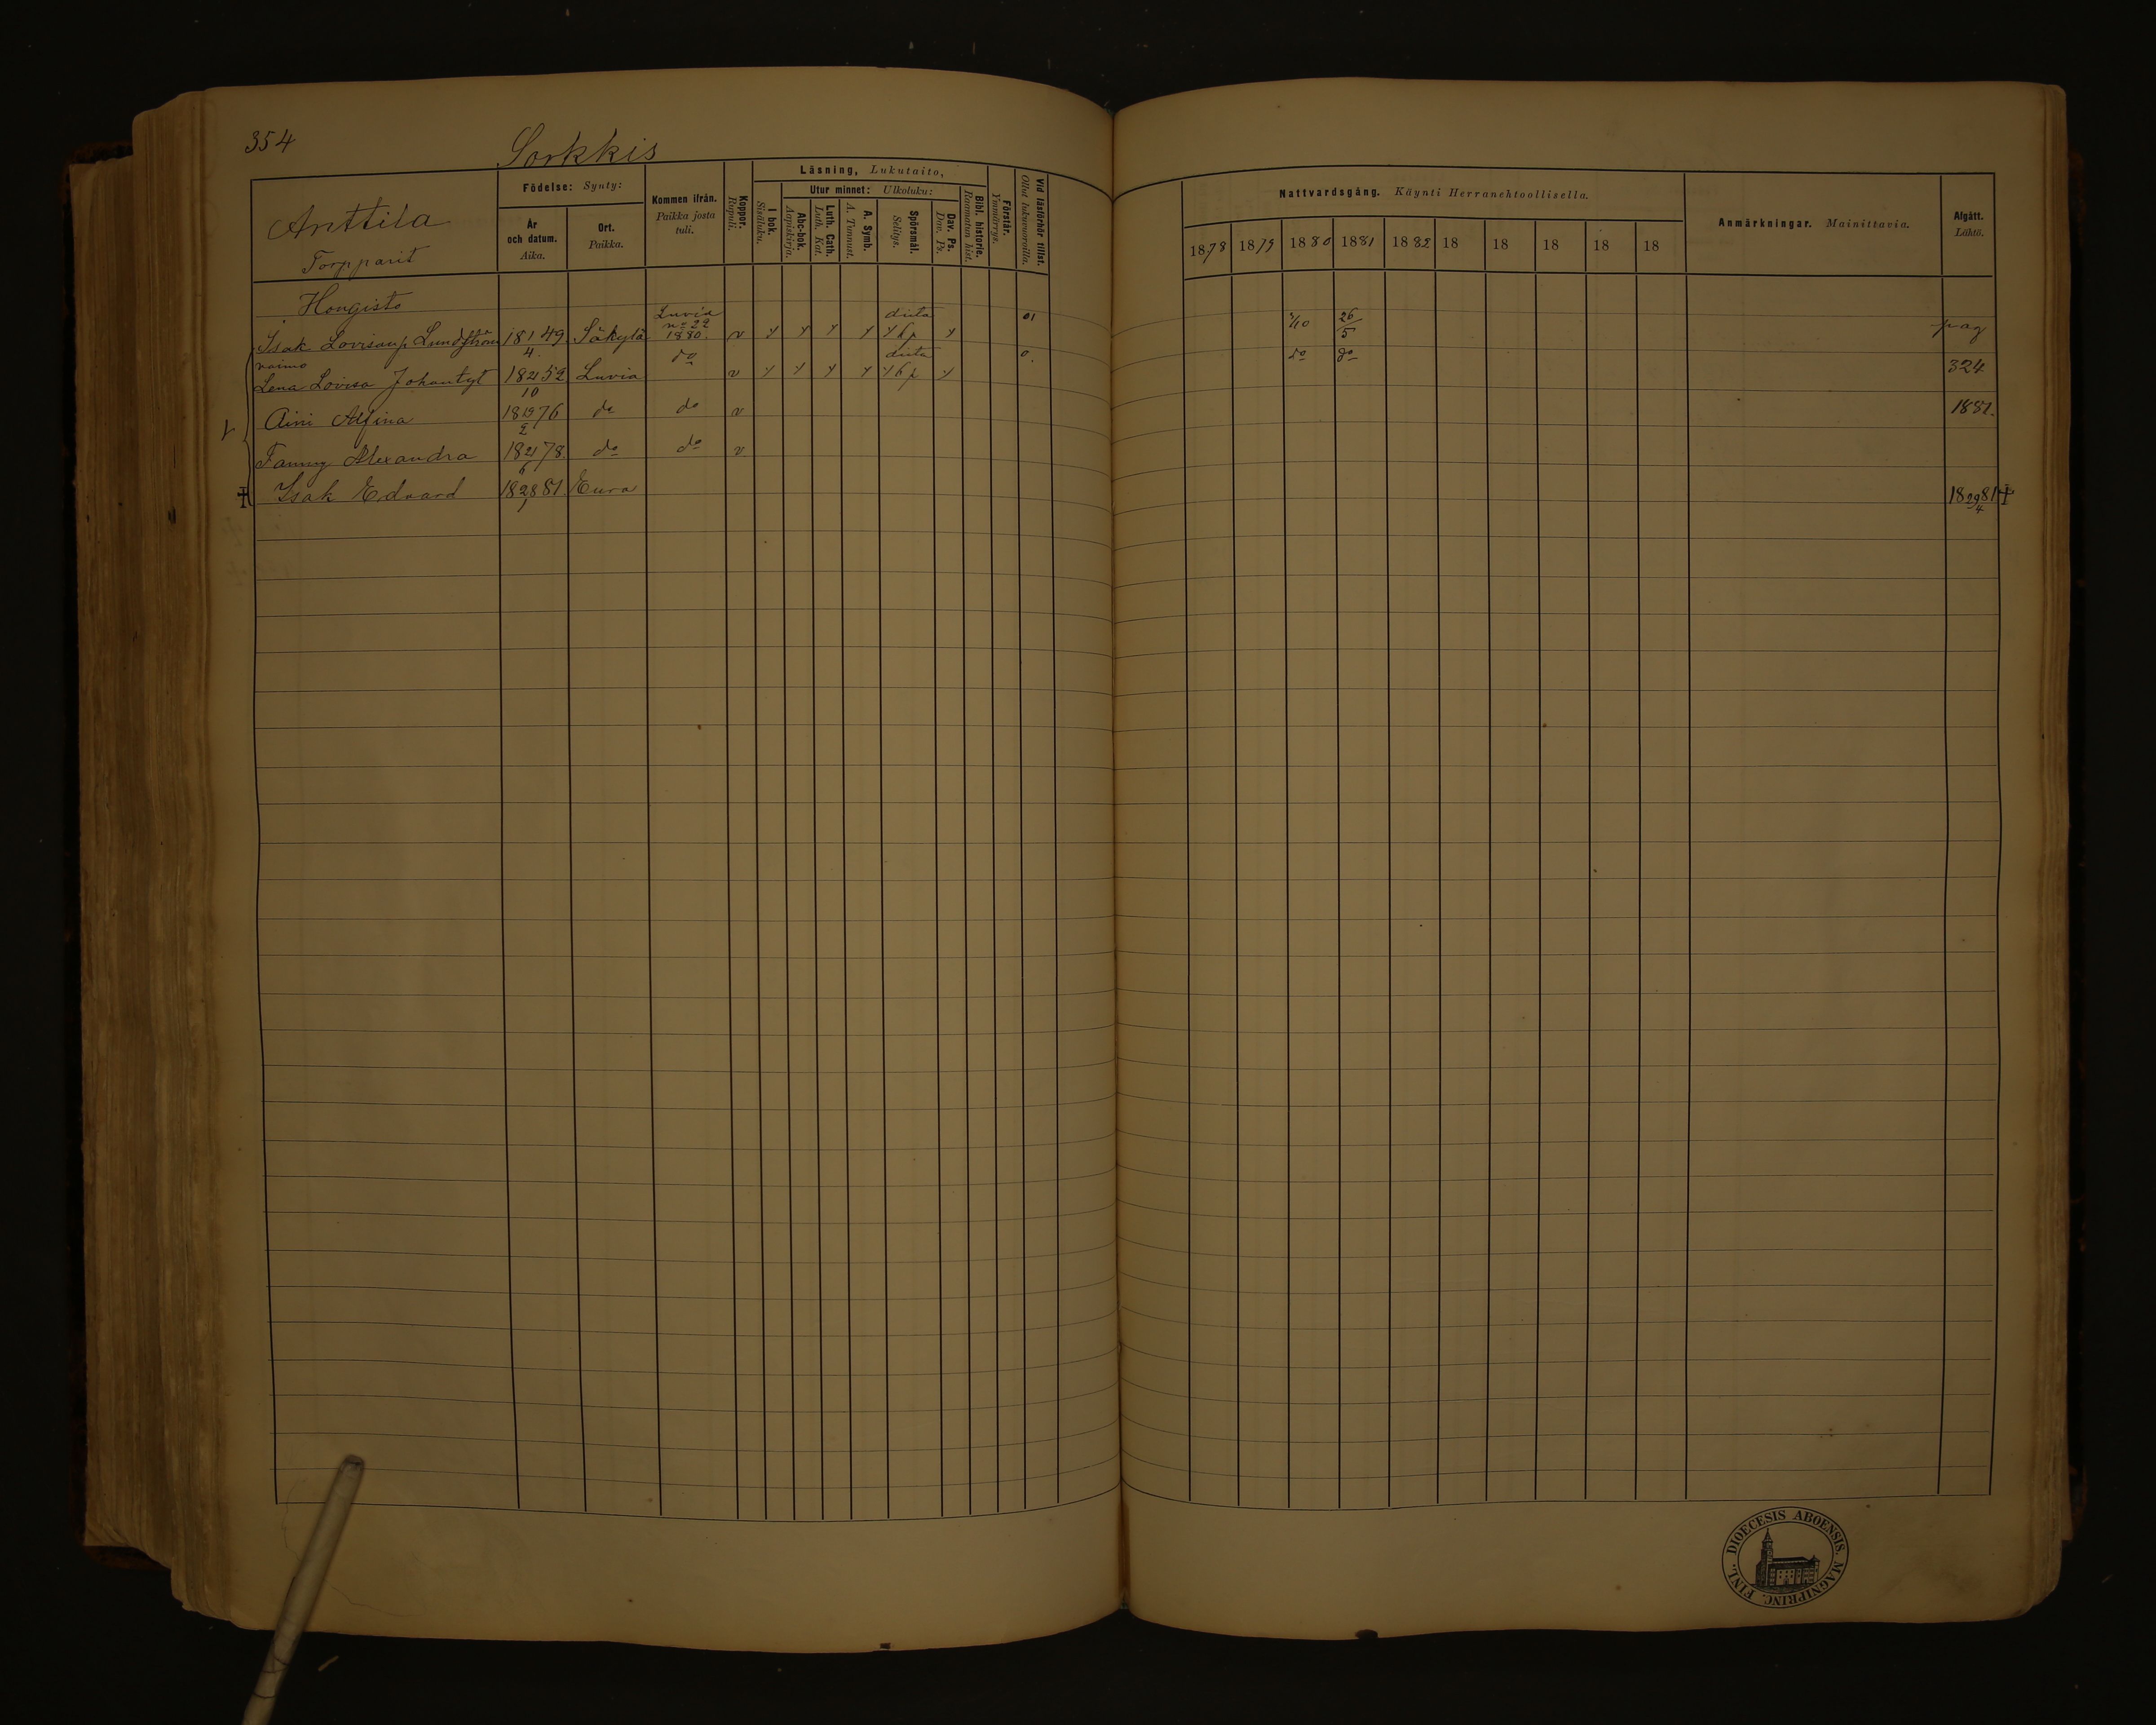 354
Sorkkis
Anttila
Torpparit
Födelse: Synty:
År och datum. Aika.
Ort. Paikka.
Kommen ifrån. Paikka josta tuli.
Koppor. Rupuli.
Läsning, Lukutaito,
I bok. Sisäluku.
Utur minnet: Ulkoluku:
Abc-bok. Aapiskirja.
Luth. Cath. Luth. Kat.
A. Symb. A. Tunnust.
Spörsmål. Selitys.
Dav. Ps. Dav. Ps.
Bibl. historie. Raamatun hist.
Förstår. Ymmärrys.
Vid läsförhör tillst. Ollut lukuvuroilla.
Nattvardsgång. Käynti Herranehtoollisella.
1878 1879 1880 1881 1882 18 18 18 18 18
Anmärkningar. Mainittavia.
Afgått. Lähtö.
Hongisto
Isak Lovisanp. Lundström 18 1/4 49. Säkylä Luvia n:o 22 1880. v y y y y y 6 p y 01 26/5 pag
vaimo
Lena Lovisa Johantyt 18 21/10 52 Luvia do v y y y y y 6 p y 0. do do 324
Aini Alfina 18 19/2 76 do do v 1881.
Fanny Alexandra 18 21/6 78. do do v
Isak Edvard 18 28/1 81. Eura 18 29/4 81 ✝
FINL. DIOECESIS ABOENSIS. MAGNIPRINC.